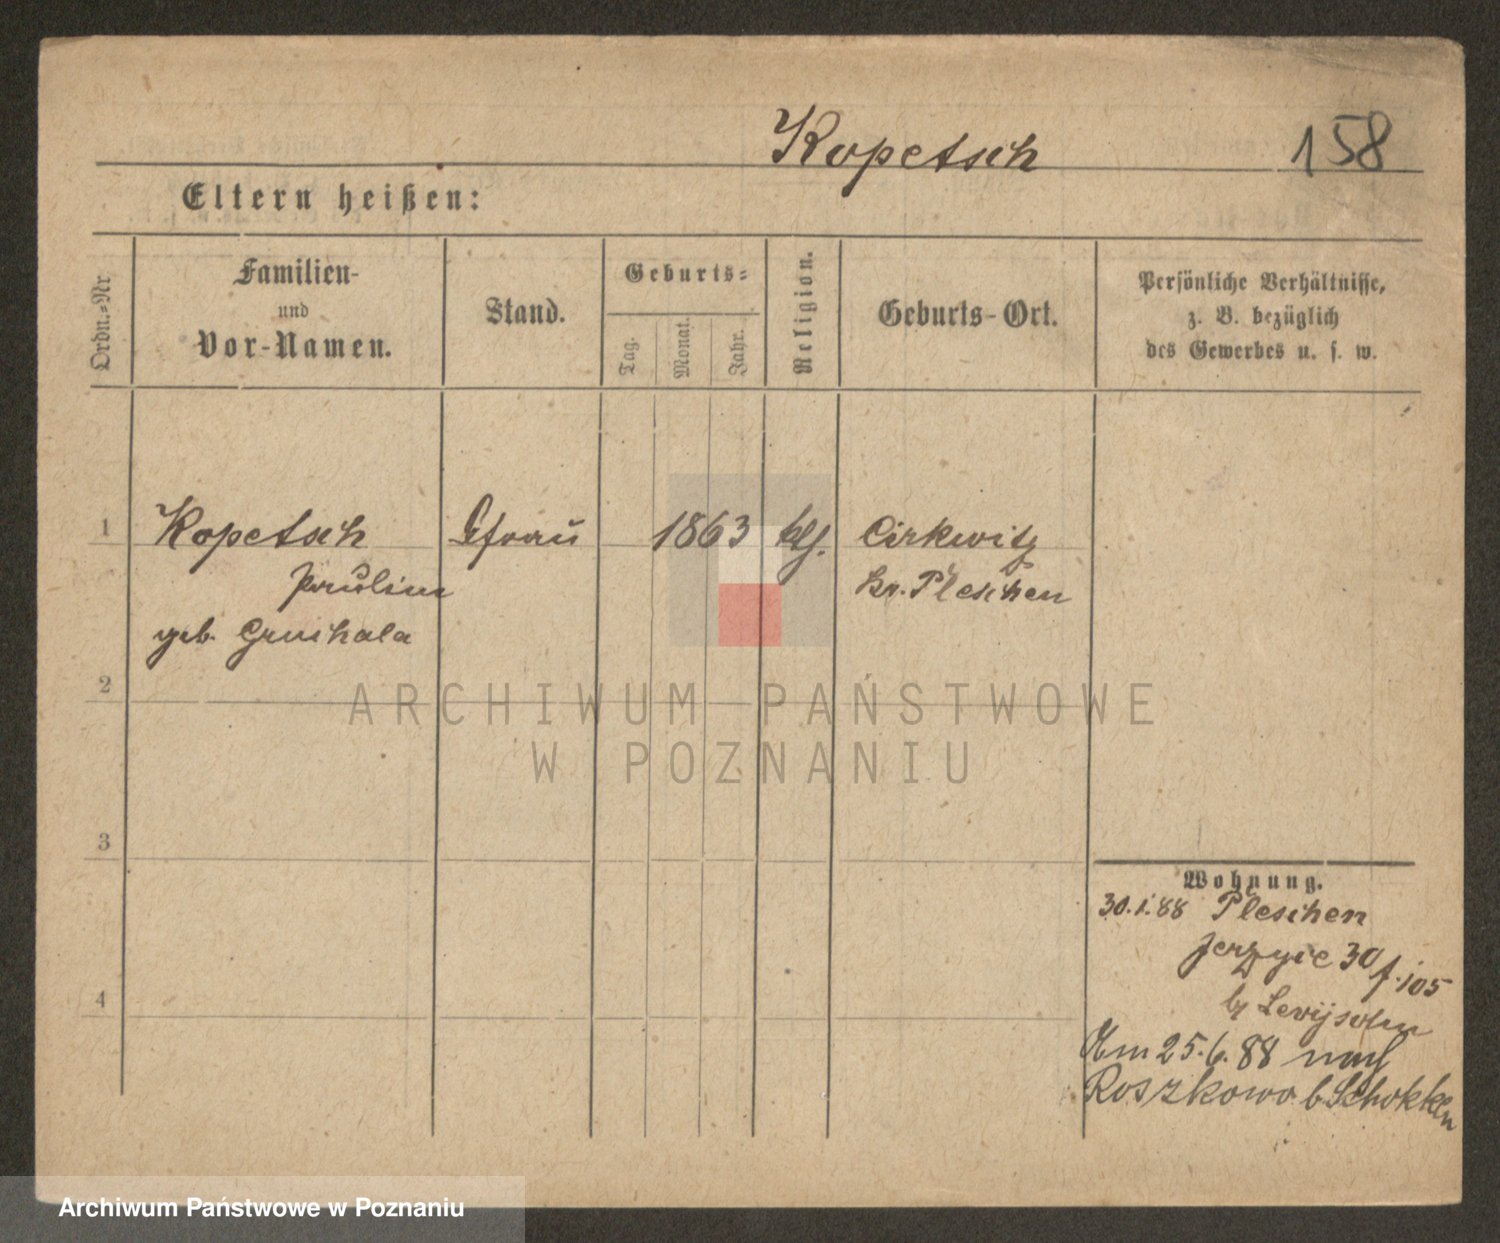 Kopetsch 158
Eltern heißen:
Ordn.=Nr
Familien-
und
Vor-Namen.
Stand.
Geburts=
Tag.
Monat.
Jahr.
Religion.
Geburts-Ort.
Persönliche Verhältnisse,
z. B. bezüglich
des Gewerbes u. s. w.
1 Kopetsch Ehefrau 1863 ktl. Cirkwitz
Pauline Kr. Pleschen
geb. Gruchala
2
3
4
Wohnung.
30.1.88 Pleschen
Jerzyce 30 f. 105
b/ Levijsohn
25.6.88 nach
Roszkowo b. Schokken
ARCHIWUM PAŃSTWOWE
W POZNANIU
Archiwum Państwowe w Poznaniu